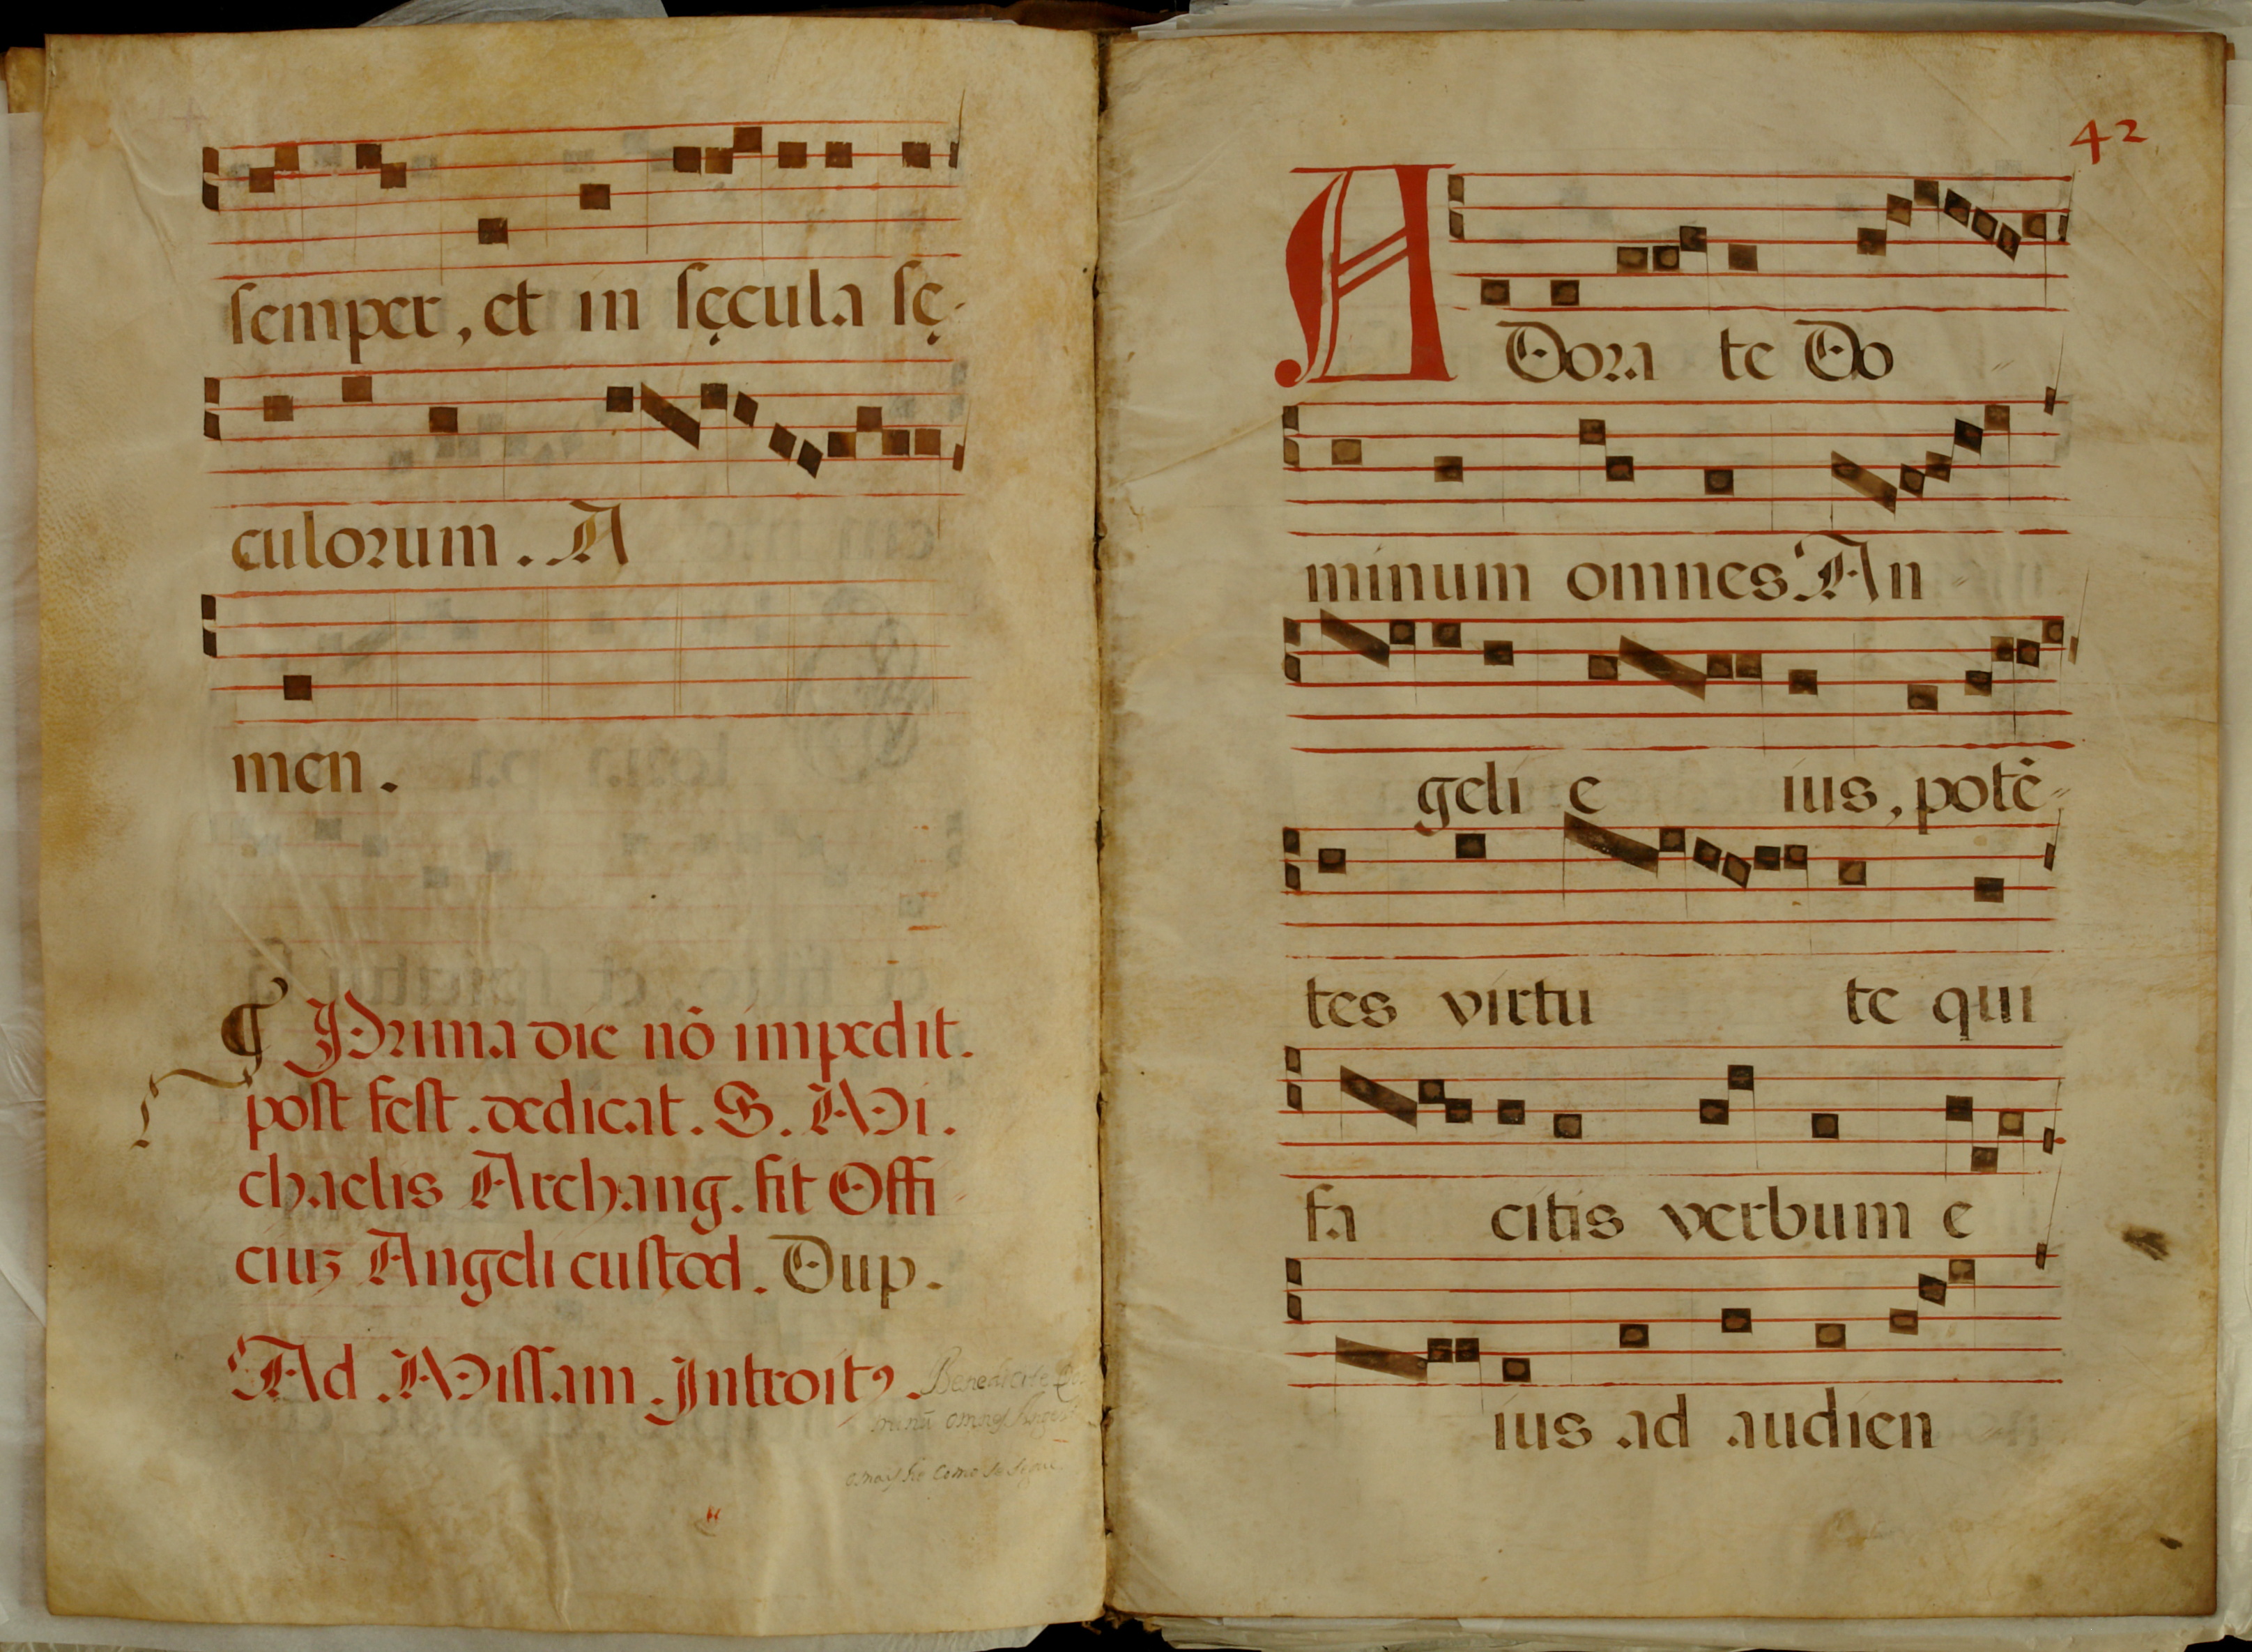 semper, et in sęcula sę-
culorum. A
men.
¶ Prima die nõ impedit.
post fest. dedicat. S. Mi.
chaelis Archang. fit Offi
ciuʒ Angeli custod. Dup.
Ad Missam. Introitꝰ.
Benedicite Do
minũ omnes Angeli
42
A
Dora te Do
minum omnes An
geli e ius, potẽ-
tes virtu te qui
fa citis verbum e
ius ad audien